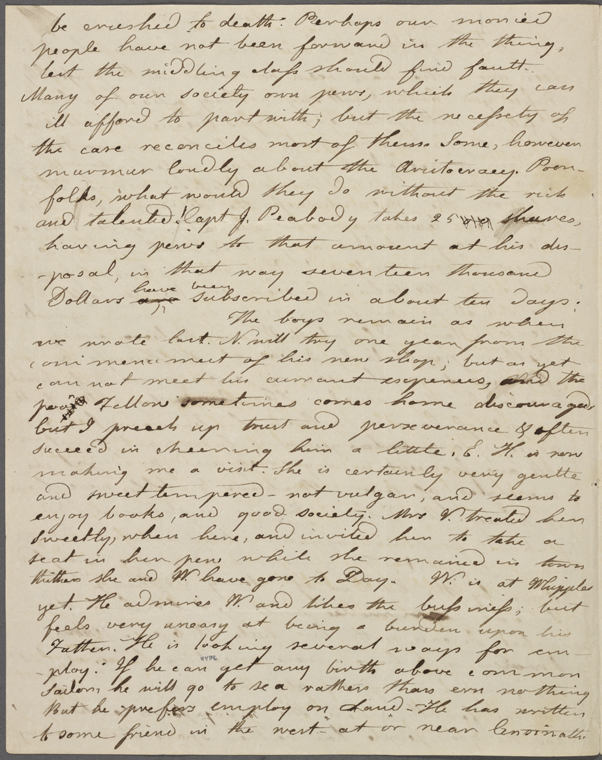 be crushed to death. Perhaps our monied
people have not been forward in the thing,
lest the middling class should find fault.
Many of our society own pews, which they can
ill afford to part with; but the necessity of
the case reconciles most of them. Some, however
murmur loudly about the Aristocracy. Poor
folks, what would they do without the rich
and talented! Capt J. Peabody takes 25 shares,
having pews to that amount at his dis-
-posal, in that way seventeen thousand
Dollars have been subscribed in about ten days.
The boys remain as when
we wrote last. N will try one year from the
commencement of his new shop, but as yet
can not meet his currant expences, and the
poor Fellow sometimes comes home discouraged
but I preach up trust and perseverance & often
succeed in cheering him a little. E. H. is now
making me a visit. She is certainly very gentle
and sweet tempered - not vulgar, and seems to
enjoy books, and good society. Mrs V. treated her
sweetly, when here, and invited her to take a
seat in her pew while she remained in town
thither she and W have gone to Day. W. is at Whipples
yet. He admires W and likes the bussiness; but
feels very uneasy at being a burden upon his
Father. He is looking several ways for em-
ploy. If he can get any birth above common
sailor, he will go to sea rather than ern nothing
But he prefers employ on Land - He has written
to some friend in the west at or near
NYPL